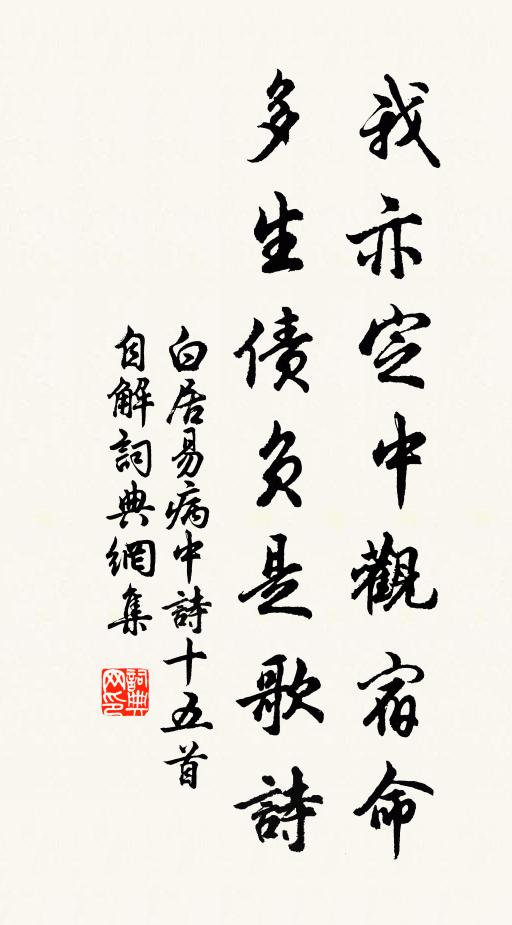 我亦定中觀宿命
多生債負是歌詩
白居易病中詩十五首
自解詞典網集
詞典网印